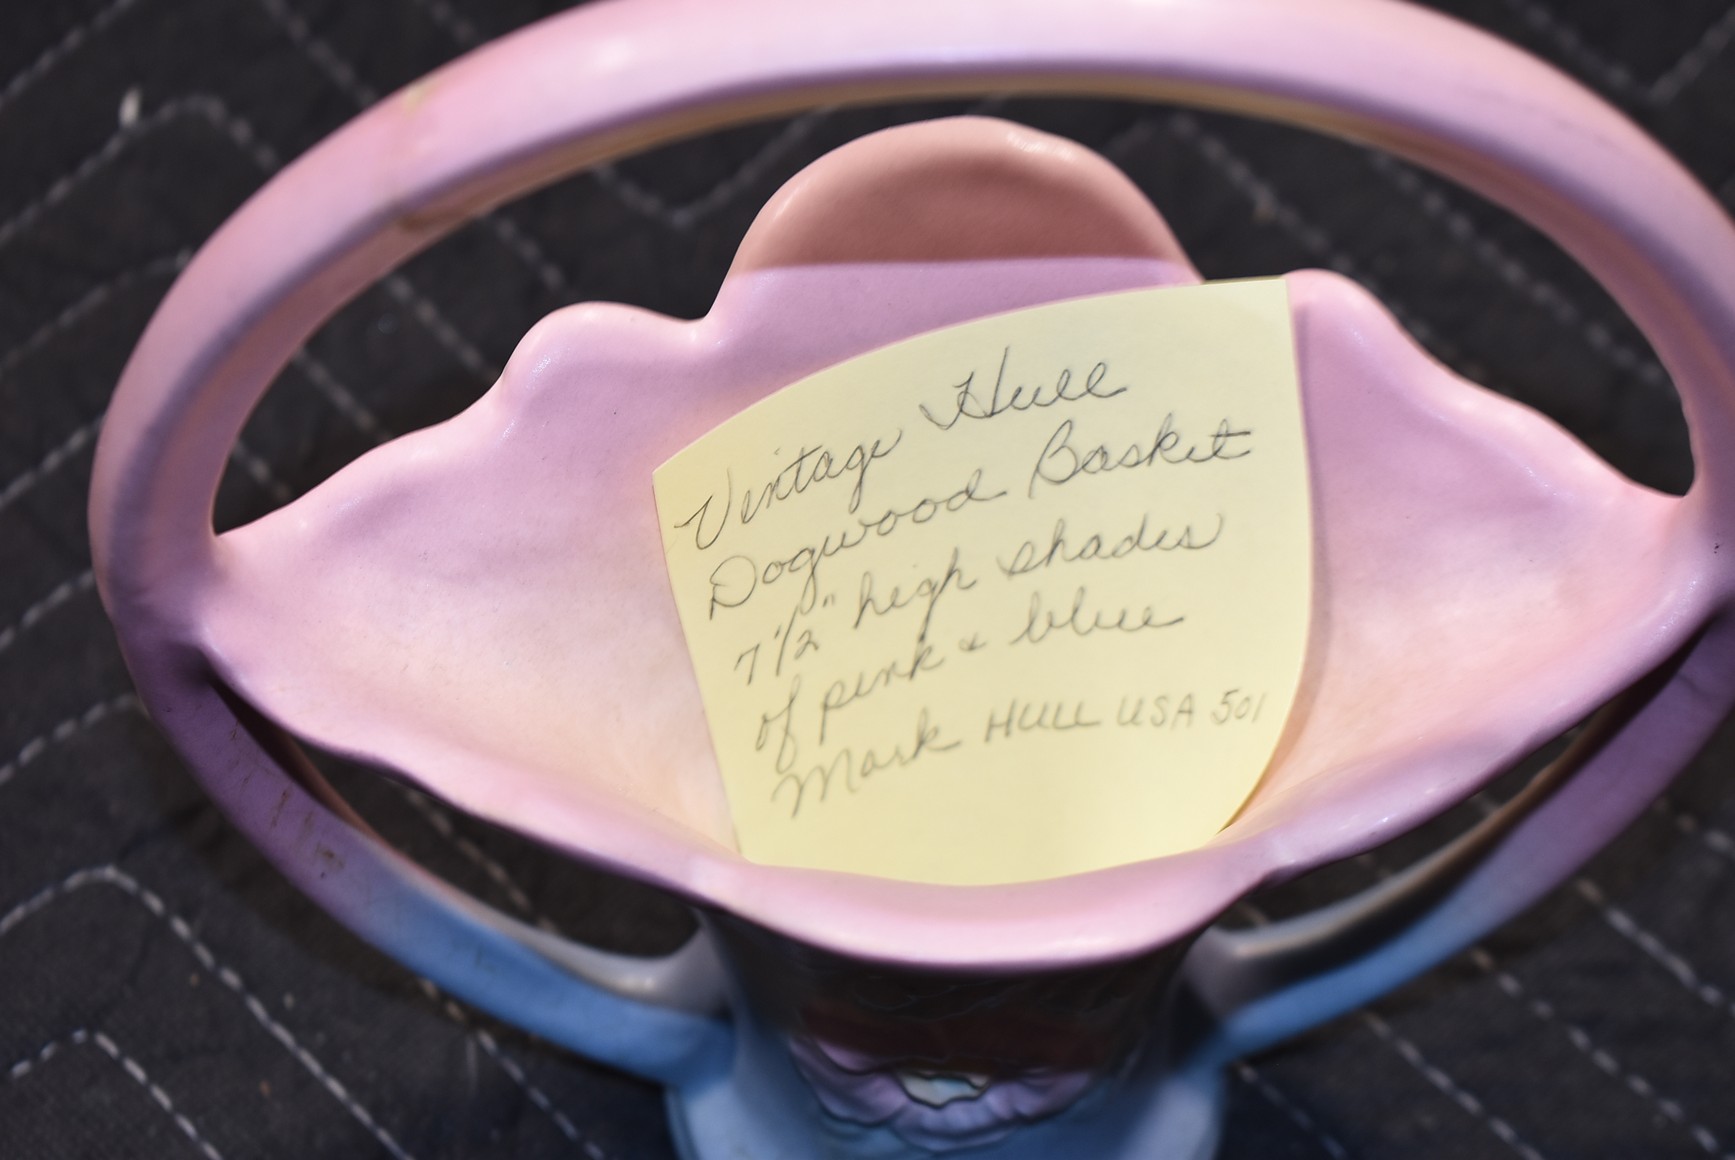 Vintage Hull
Dogwood Basket
7 1/2" high shades
of pink & blue
Mark HULL USA 501